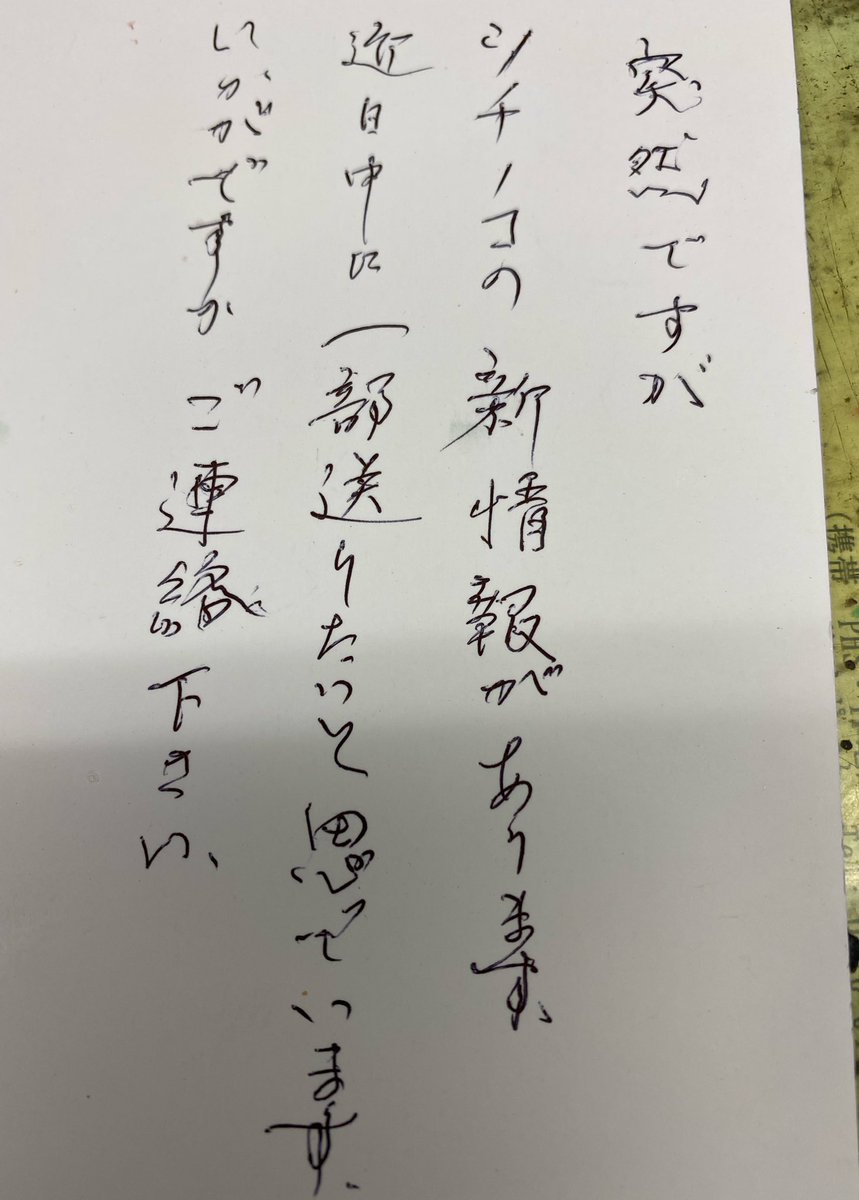 突然ですが
ツチノコの新情報があります、
近日中に一部送りたいと思っています、
いかがですか ご連絡下さい、
(携帯 PHS